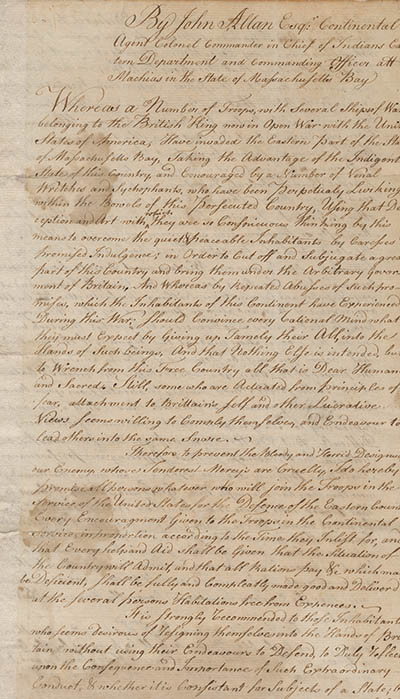 By John Allan Esqr. Continental
Agent Colonel Commander in Chief of Indians Eas
tern Department and Commanding Officer att
Machias in the State of Massachusetts Bay
Whereas a Number of Troops, with Several Ships of War
belonging to the British King now in Open War with the Unit
States of America, Have invaded the Eastern part of the Sta
of Massachusetts Bay, Taking the Advantage of the Indigent
State of this Country, and encouraged by a Number of Venal
Wretches and Sychophants, who have been Perpetualy Lurking
within the Bowels of this persecuted Country, Using that De
ception and art with which They are so Conspicuous Thinking by this
means to overcome the quiet & peaceable Inhabitants by Caresses
promised Indulgence; in Order to Cut off and Subjugate a grea
part of this Country and bring them under the Arbitrary Govern
ment of Britain, And Whereas by Repeated Abuses of Such pro
mises, which the Inhabitants of this Continent have Experienced
During this War, Should Convince every Rational Mind what
they must Expect by Giving up Tamely their All, into the
Hands of Such beings, And that Nothing Else is intended but
to Wrench from this Free Country all that is Dear Humane
and Sacred. Still, some who are Actuated from principles of
fear, attachment to Brittain, Self and other Lucrative
Views Seems willing to Comply themselves, and Endeavour to
lead others into the same Snare.
Therefore to prevent the Bloody and Horrid Designs
our Enemy, whose Tenderest Mercys are Cruelty, I do hereby
promise All persons whatever who will join the Troops in the
Service of the United States, for the Defence of the Eastern Coun
Every Encouragment Given to the Troops in the Continental
Service, in proportion according to the Time they Inlist for, and
that Every help and Aid shall be Given that the Situation of
the Country will Admit, and that all Ration pay & which ma
be Deficient, shall be fully and Compleatly made good and Deliverd
at the Several persons Habitations free from Expences.
It is strongly recommended to those Inhabitants
who seems desirous of Resigning themselves into the Hands of Brit
tain without using their Endeavours to Defend, to Duly Reflect
upon the Consequence and Importance of Such Extraordinary
Conduct, & whether it is Consistant for Subjects of a State,